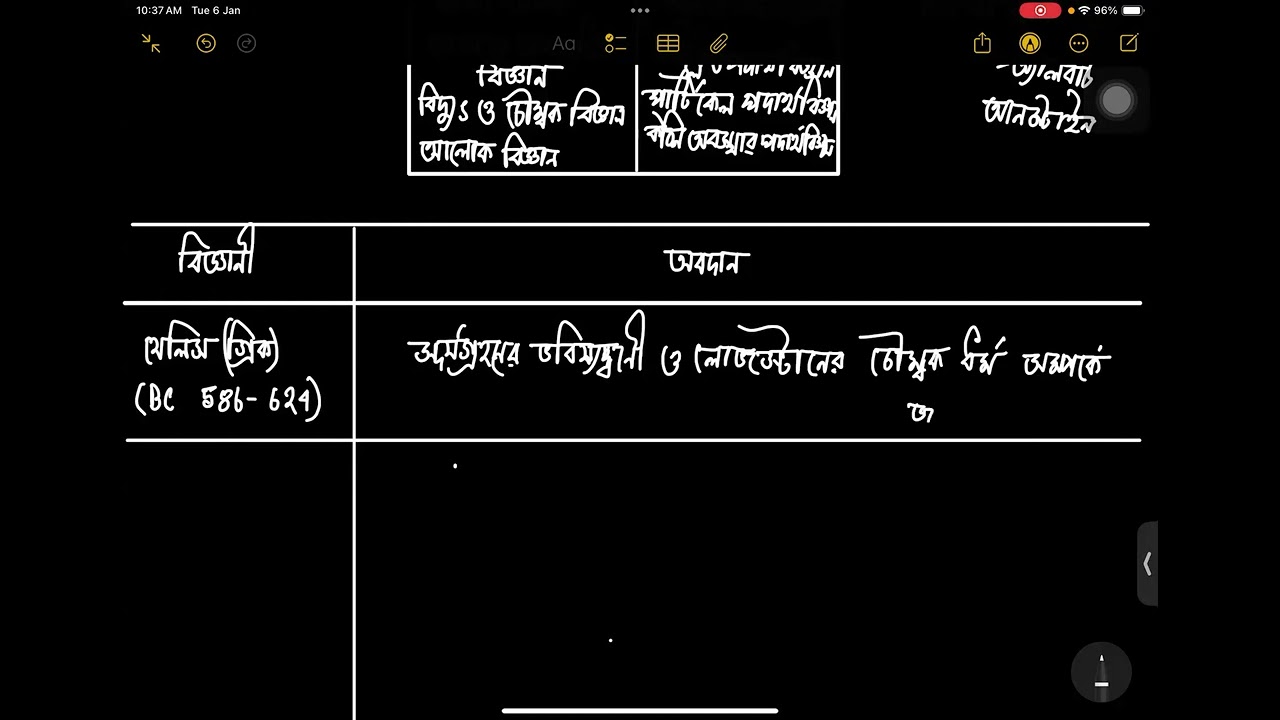 10:37 AM Tue 6 Jan
96%
Aa
বিজ্ঞান
বিদ্যুৎ ও চৌম্বক বিজ্ঞান
আলোক বিজ্ঞান
ও পদার্থবিজ্ঞান
পার্টিকেল পদার্থবিজ্ঞান
অবস্থার পদার্থবিজ্ঞান
আইনস্টাইন
বিজ্ঞানী
অবদান
থেলিস (গ্রিক)
(BC 586-624)
সূর্যগ্রহণের ভবিষ্যদ্বাণী ও লোডস্টোনের চৌম্বক ধর্ম সম্পর্কে
জ